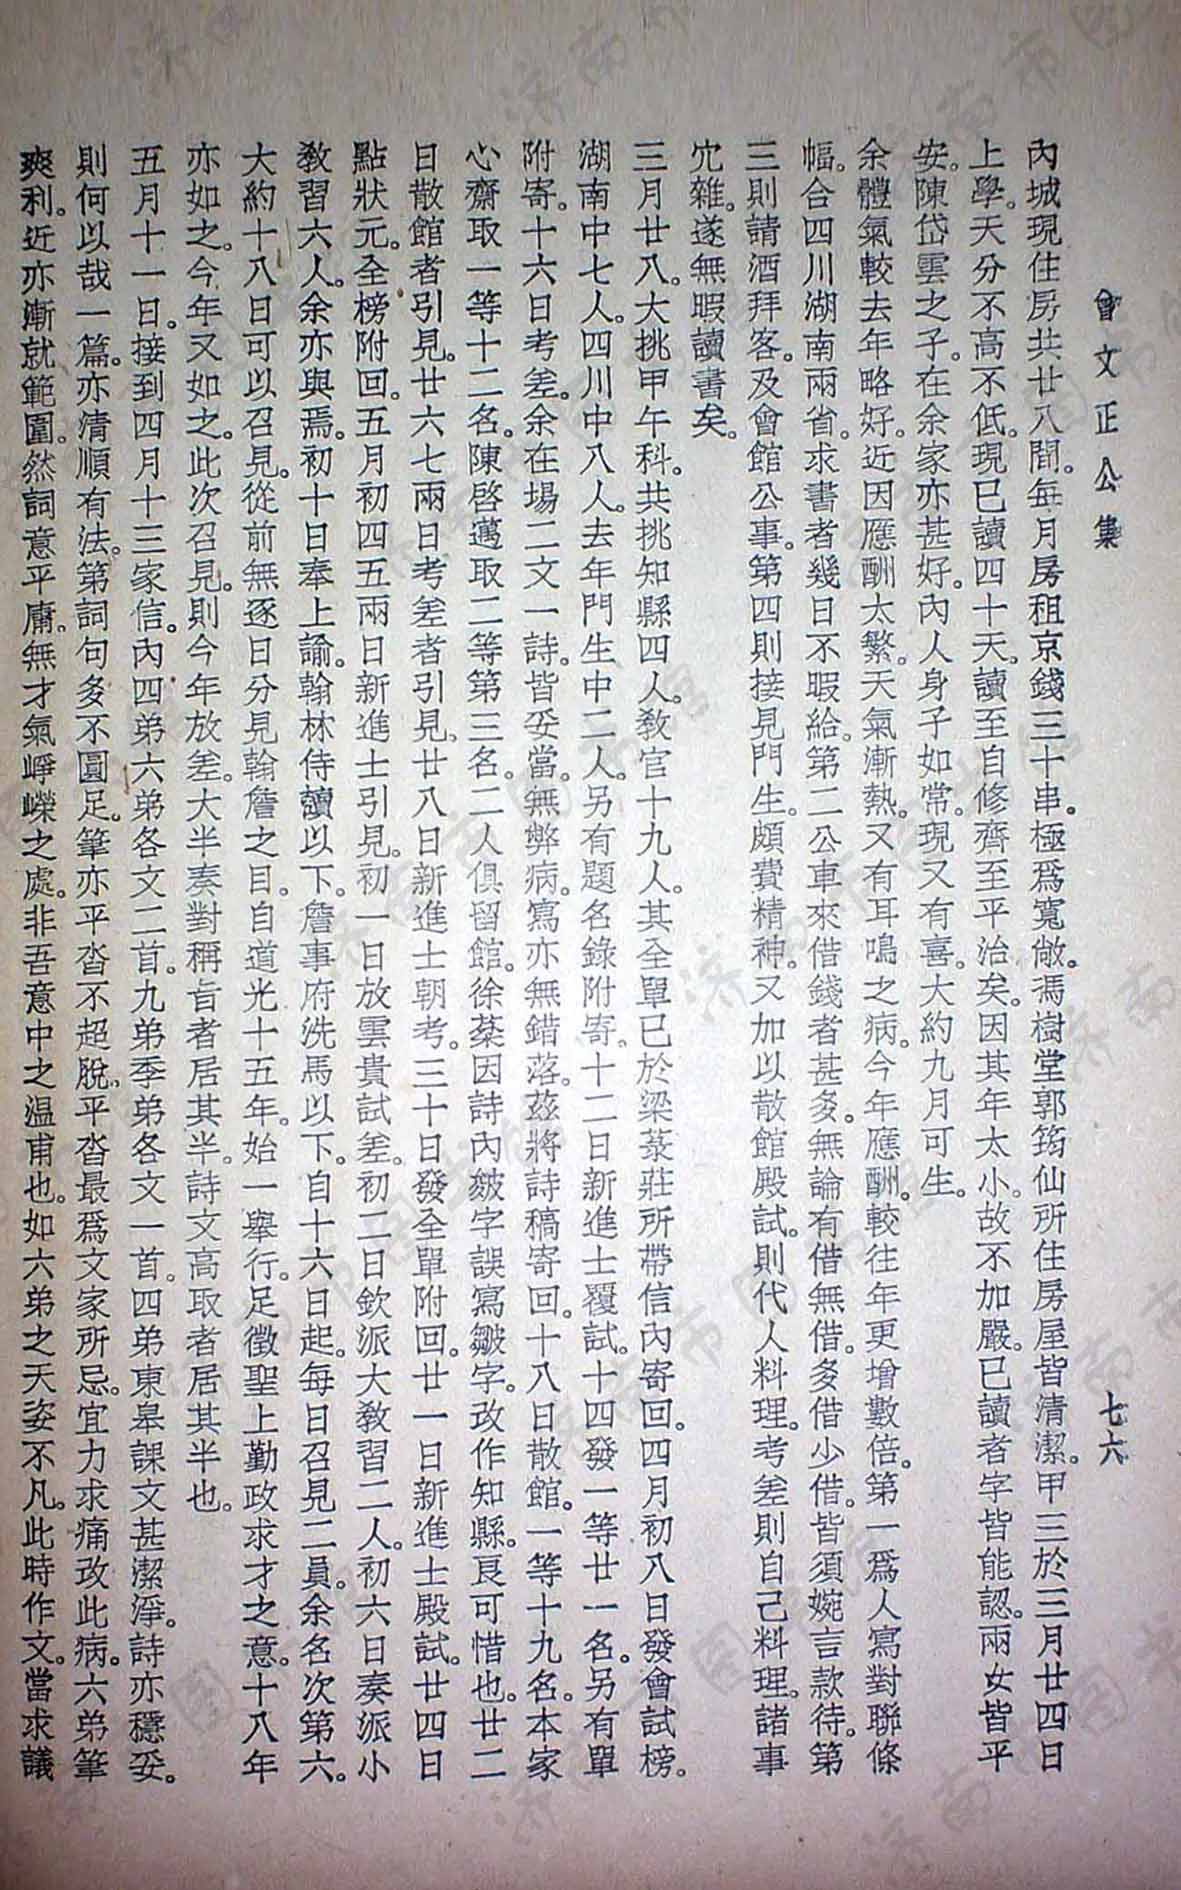 曾文正公集
七六
內城現住房共廿八間。每月房租京錢三十串。極爲寬敞。馮樹堂郭筠仙所住房屋皆清潔。甲三於三月廿四日
上學。天分不高不低。現已讀四十天。讀至自修齊至平治矣。因其年太小。故不加嚴。已讀者字皆能認。兩女皆平
安。陳岱雲之子。在余家亦甚好。內人身子如常。現又有喜。大約九月可生。
余體氣較去年略好。近因應酬太繁。天氣漸熱。又有耳鳴之病。今年應酬。較往年更增數倍。第一爲人寫對聯條
幅。合四川湖南兩省。求書者幾日不暇給。第二公車來借錢者甚多。無論有借無借。多借少借。皆須婉言款待。第
三則請酒拜客。及會館公事。第四則接見門生。頗費精神。又加以散館殿試。則代人料理。考差則自己料理。諸事
宂雜。遂無暇讀書矣。
三月廿八。大挑甲午科。共挑知縣四人。教官十九人。其全單已於梁菉莊所帶信內寄回。四月初八日發會試榜。
湖南中七人。四川中八人。去年門生中二人。另有題名錄附寄。十二日新進士覆試。十四發一等廿一名。另有單
附寄。十六日考差。余在場二文一詩。皆妥當。無弊病。寫亦無錯落。茲將詩稿寄回。十八日散館。一等十九名。本家
心齋取一等十二名。陳啓邁取二等第三名。二人俱留館。徐棻因詩內皴字誤寫皺字。改作知縣。良可惜也。廿二
日散館者引見。廿六七兩日考差者引見。廿八日新進士朝考。三十日發全單附回。廿一日新進士殿試。廿四日
點狀元。全榜附回。五月初四五兩日新進士引見。初一日放雲貴試差。初二日欽派大教習二人。初六日奏派小
教習六人。余亦與焉。初十日奉上諭。翰林侍讀以下。詹事府洗馬以下。自十六日起。每日召見二員。余名次第六。
大約十八日可以召見。從前無逐日分見翰詹之目。自道光十五年。始一舉行。足徵聖上勤政求才之意。十八年
亦如之。今年又如之。此次召見。則今年放差。大半奏對稱旨者居其半。詩文高取者居其半也。
五月十一日。接到四月十三家信。內四弟六弟各文二首。九弟季弟各文一首。四弟東皋課文甚潔淨。詩亦穩妥。
則何以哉一篇。亦清順有法。第詞句多不圓足。筆亦平沓不超脫。平沓最爲文家所忌。宜力求痛改此病。六弟筆
爽利。近亦漸就範圍。然詞意平庸。無才氣崢嶸之處。非吾意中之溫甫也。如六弟之天姿不凡。此時作文。當求議